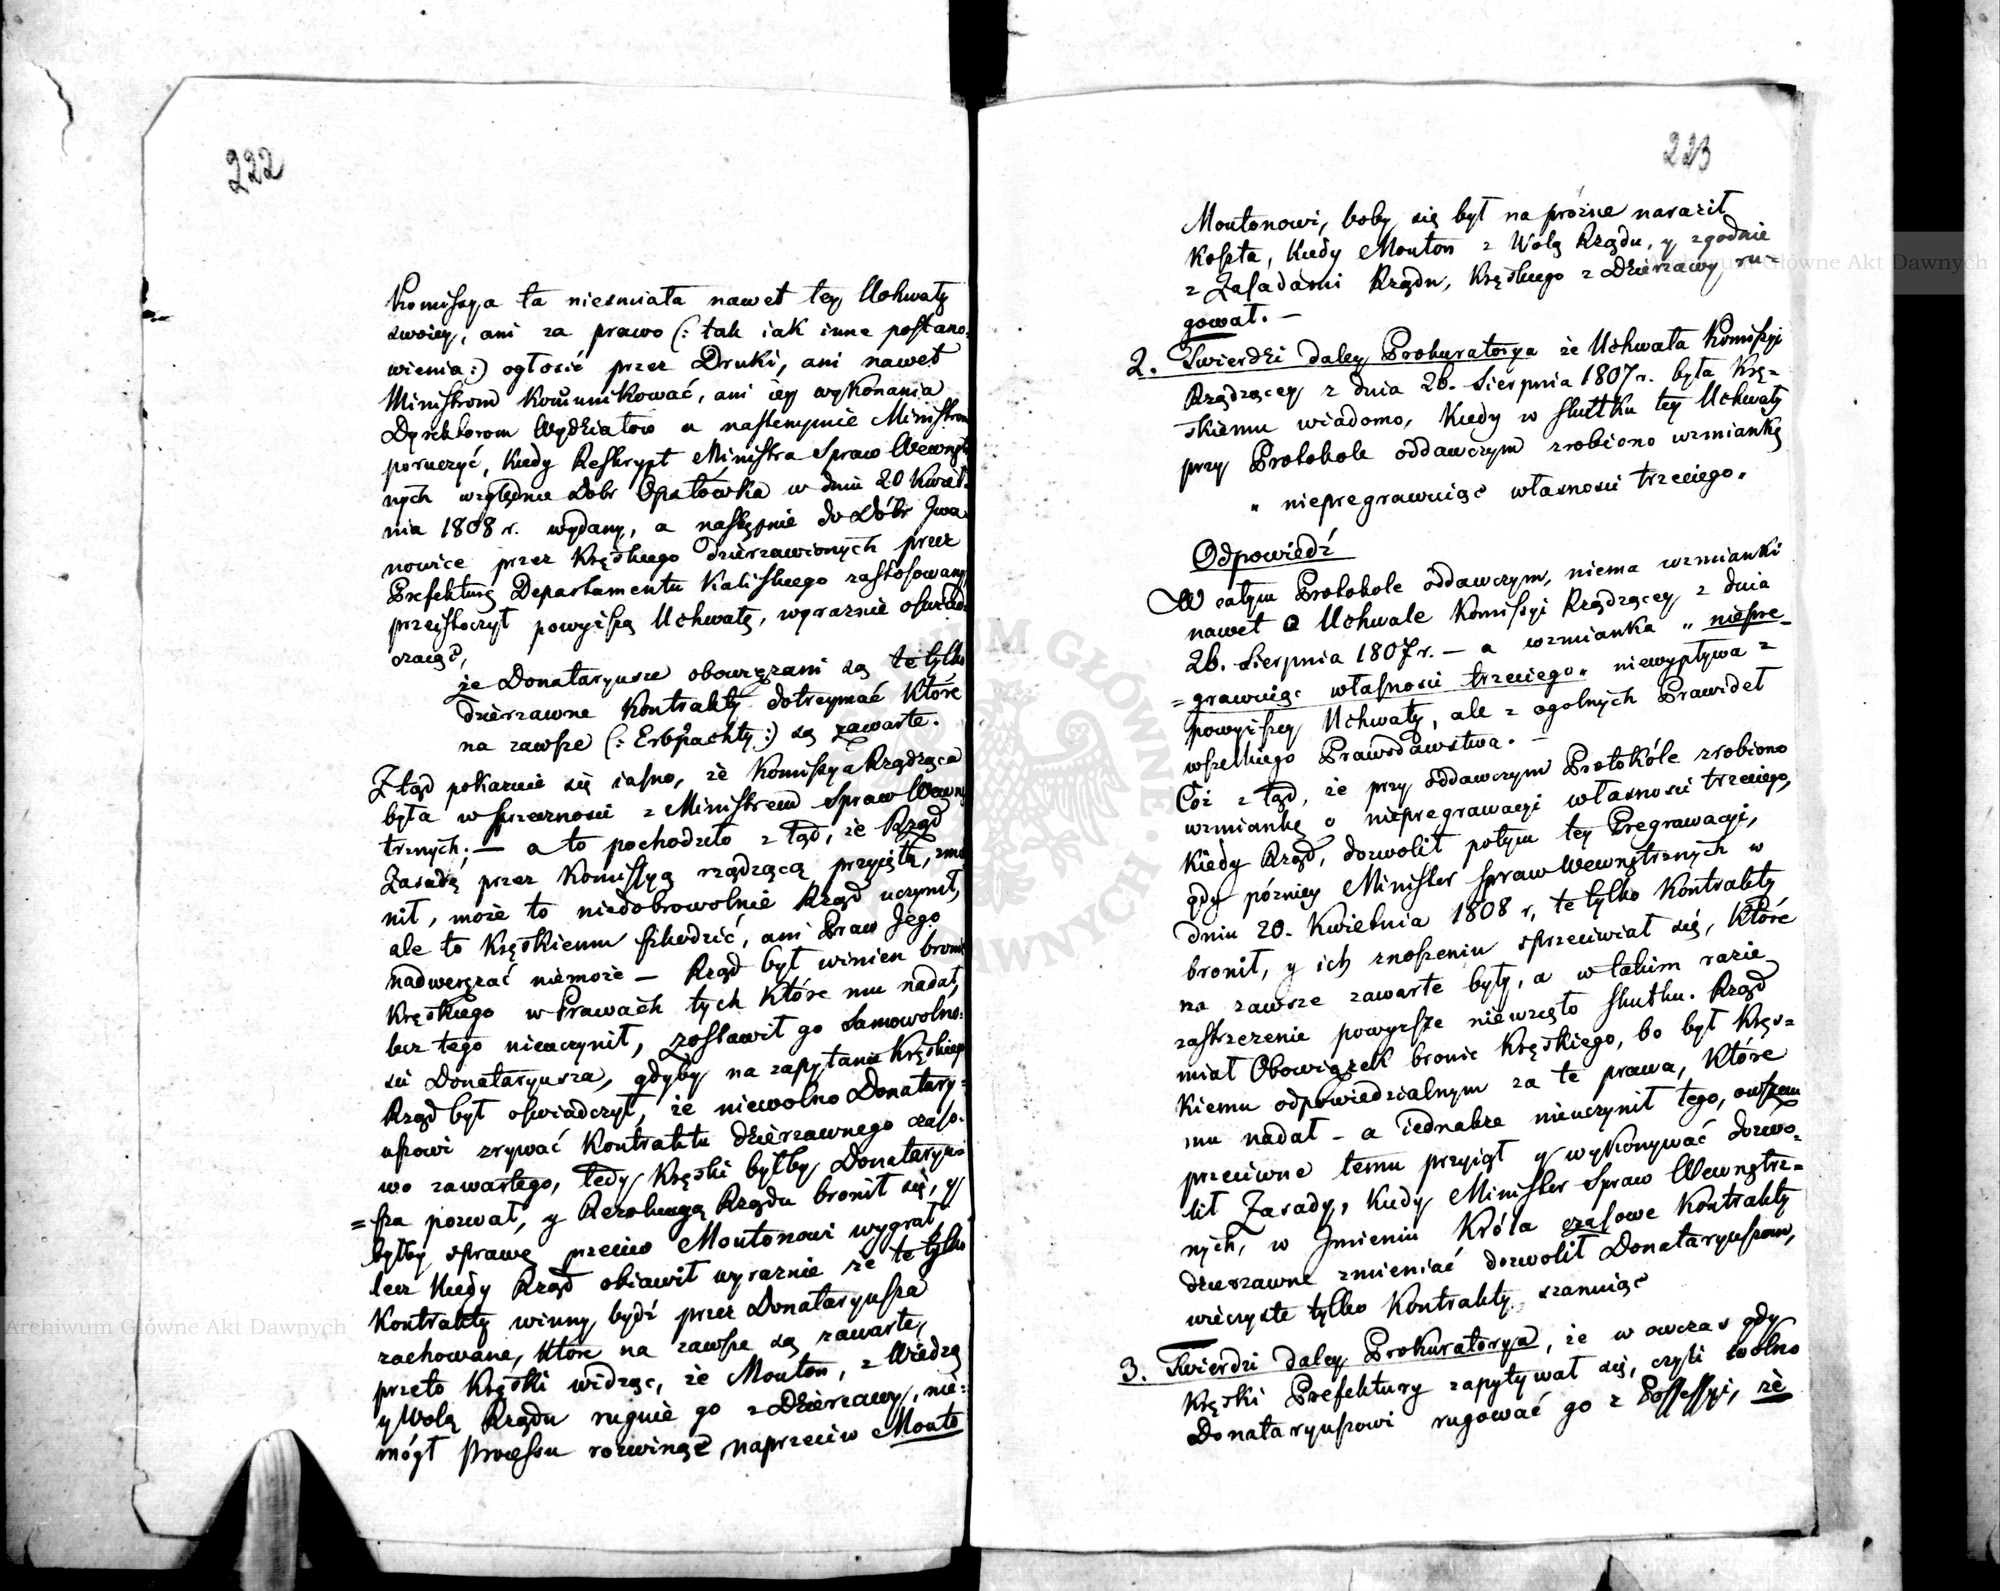 222
Komissya ta niesmiała nawet tey Uchwały
swoiey, ani za prawo (: tak iak inne postano-
wienia:) ogłosić przez Druki, ani nawet
Ministrom Kom̄unikować, ani iey wykonania
Dyrektorom Wydziałow a następnie Ministrom
poruczyć, kiedy Reskrypt Ministra Spraw Wewnętrz
nych względnie Dobr Opatówka w dniu 20 Kwiet-
nia 1808 r. wydany, a następnie do Dóbr Iwa
nowice przez Kręskiego dzierzawionych przez
Prefekturę Departamentu Kaliskiego zastosowany,
przeistoczył powyiszą Uchwałę, wyraznie oswiad-
czaiąc,
że Donataryusze obowęzani są te tylko
dzierzawne Kontrakty dotrzymać Które
na zawsze (: Erbpachty:) są zawarte.
Z tąd pokazuie się iasno, że Komissya Rządząca
była w sprzeznosci z Ministrem Spraw Wewnę
trznych; — a to pochodziło z tąd, że Rząd
Zasadę przez Komissyą rządzącą przyiętą, zmie
nił, może to niedobrowolnie Rząd uczynił,
ale to Kręskiemu szkodzić, ani Praw Jego
nadweręzać niemoże — Rząd był winien bronić
Kręskiego w Prawach tych Które mu nadał,
lecz tego nieuczynił, zostawił go samowolno-
sci Donataryusza, gdyby na zapytanie Kręskiego
Rząd był oswiadczył, że niewolno Donatary-
uszowi zrywać Kontraktu dzierzawnego czaso-
wo zawartego, tedy Kręski byłby Donataryu-
= sza pozwał, y Rezolucyą Rządu bronił się, y
byłby sprawę przeciw Moutonowi wygrał,
lecz kiedy Rząd obiawił wyraznie że te tylko
Kontrakty winny bydź przez Donataryusza
zachowane, które na zawsze są zawarte,
przeto Kręski widząc, że Mouton, z Wiedzą
y Wolą Rządu ruguie go z Dzierzawy, nie-
mógł Processu rozwinąć naprzeciw Mouto
223
Moutonowi, boby się był na prózne naraził
Koszta, kiedy Mouton z Wolą Rządu, y zgodnie
z Zasadami Rządu, Kręskiego z Dzierzawy ru-
gował. —
2. Twierdzi daley Prokuratorya że Uchwała Komissyi
Rządzącey z dnia 26. Sierpnia 1807 r. była Krę-
skiemu wiadomo, kiedy w skutku tey Uchwały
przy Protokole oddawczym zrobiono wzmiankę
„ niepregrawuiąc własnosci trzeciego„
Odpowiedź
W całym Protokole oddawczym, niema wzmianki
nawet o Uchwale Komissyi Rządzącey z dnia
26. Sierpnia 1807 r. — a wzmianka „ niepre-
= grawuiąc własnosci trzeciego„ niewypływa z
powyiszey Uchwały, ale z ogolnych Prawideł
wszelkiego Prawodawstwa. —
Cóż z tąd, że przy oddawczym Protokóle zrobiono
wzmiankę o niepregrawacyi własnosci trzeciego,
Kiedy Rząd, dozwolił potym tey Pregrawacyi,
gdy pózniey Minister Spraw Wewnętrznych w
dniu 20. Kwietnia 1808 r, te tylko Kontrakty
bronił, y ich znoszeniu sprzeciwiał się, Które
na zawsze zawarte były, a w takim razie
zastrzezenie powyrsze niewzięto skutku. Rząd
miał Obowiązek bronic Kręskiego, bo był Kręs-
Kiemu odpowiedzialnym za te prawa, Które
mu nadał — a iednakze nieuczynił tego, owszem
przeciwne temu przyiął y wykonywać dozwo-
lił Zasady, kiedy Minister Spraw Wewnętrz-
nych, w Jmieniu Króla czasowe Kontrakty
dzierzawne zmieniać dozwolił Donataryuszom,
wieczyste tylko Kontrakty szanuiąc
3. Twierdzi daley Prokuratorya, że w owczas gdy
Kręski Prefektury zapytywał się, czyli wolno
Donataryuszowi rugować go z Possessyi, że